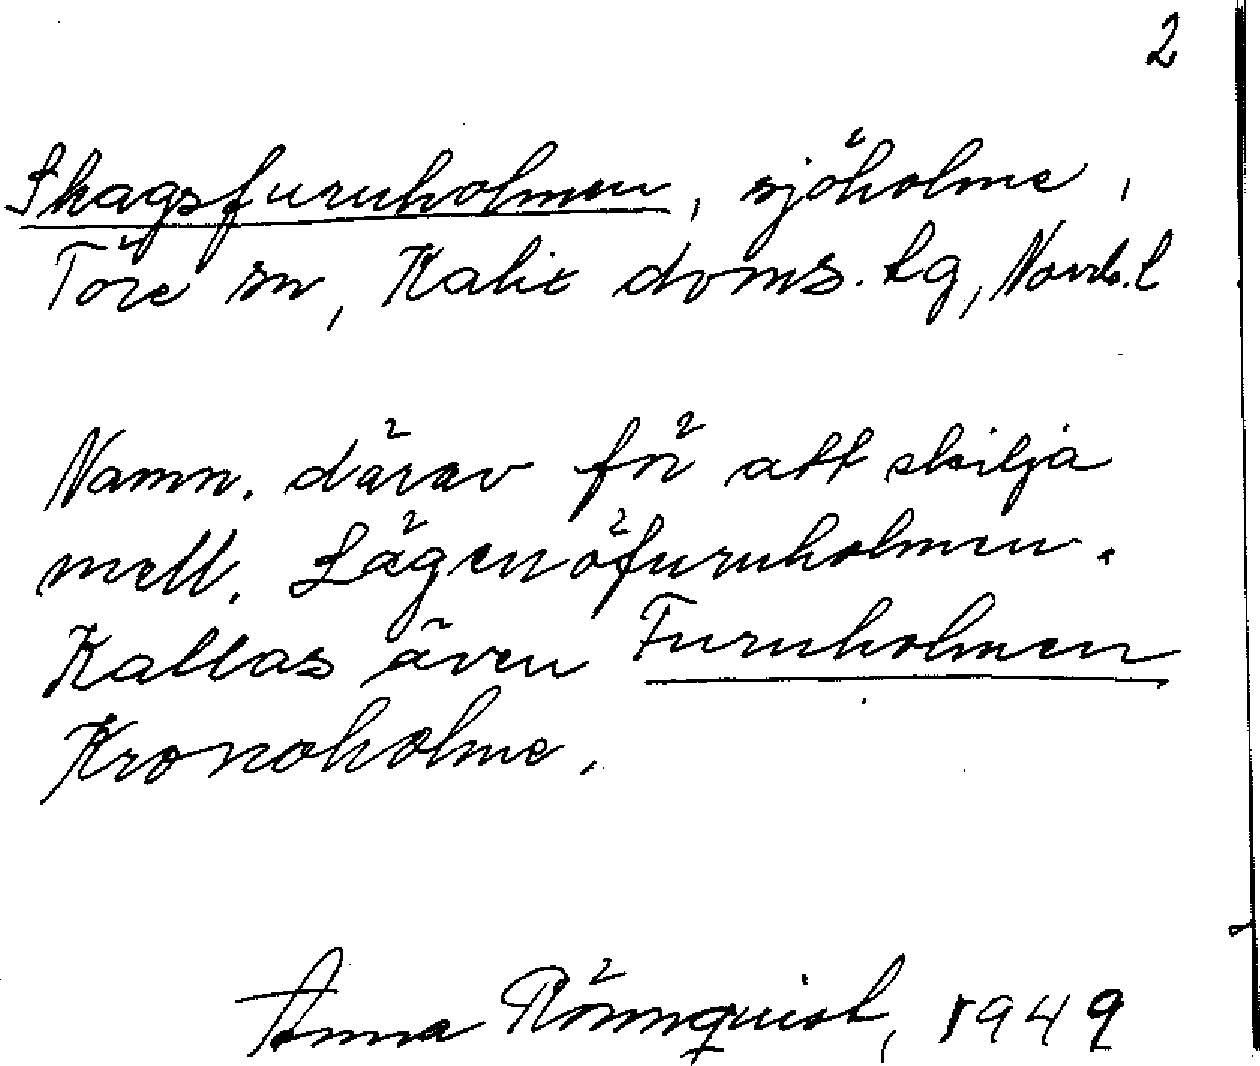 2
Skagsfuruholmen, sjöholme,
Töre sn, Kalix doms. lg, Norrb. l
Namn. därav för att skilja
mell. Lägenöfuruholmen.
Kallas även Furuholmen
Kronoholme.
Anna Rönnquist, 1949